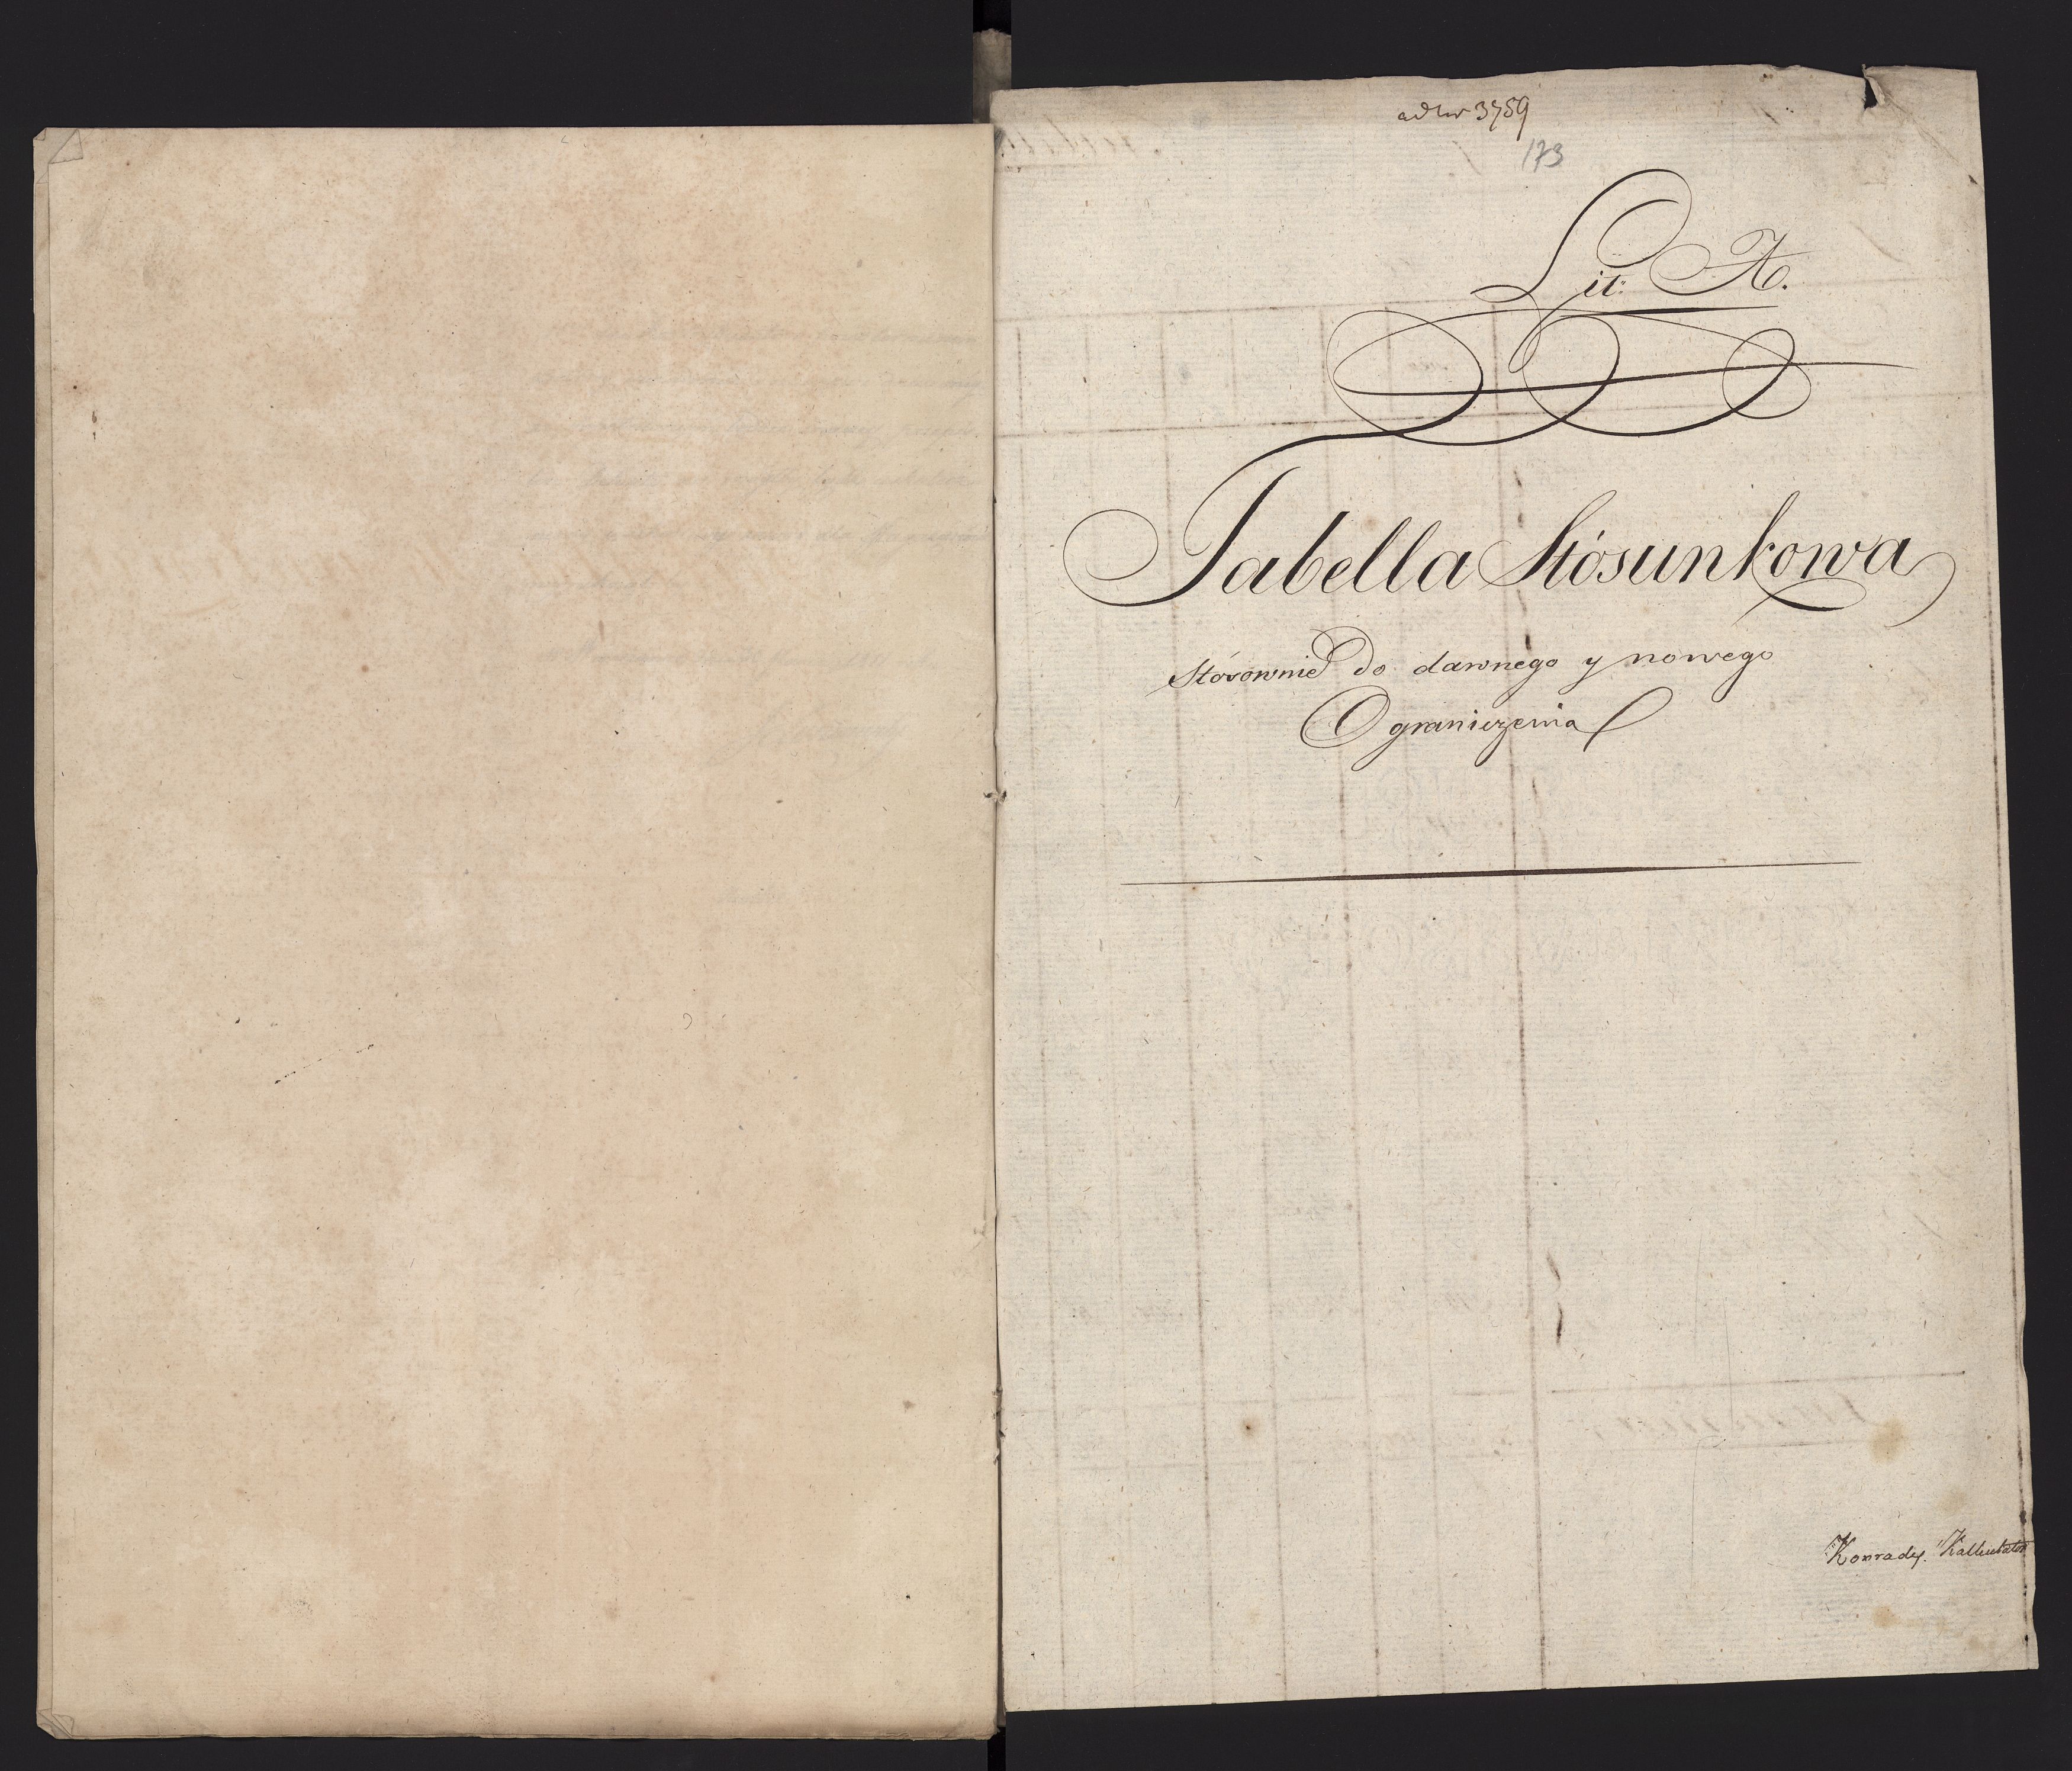 ad Nro 3759
173
Lit: A.
Tabella Stósunkowa
Stósownie do dawnego y nowego
Ograniczenia
Konrady. Kalkulator